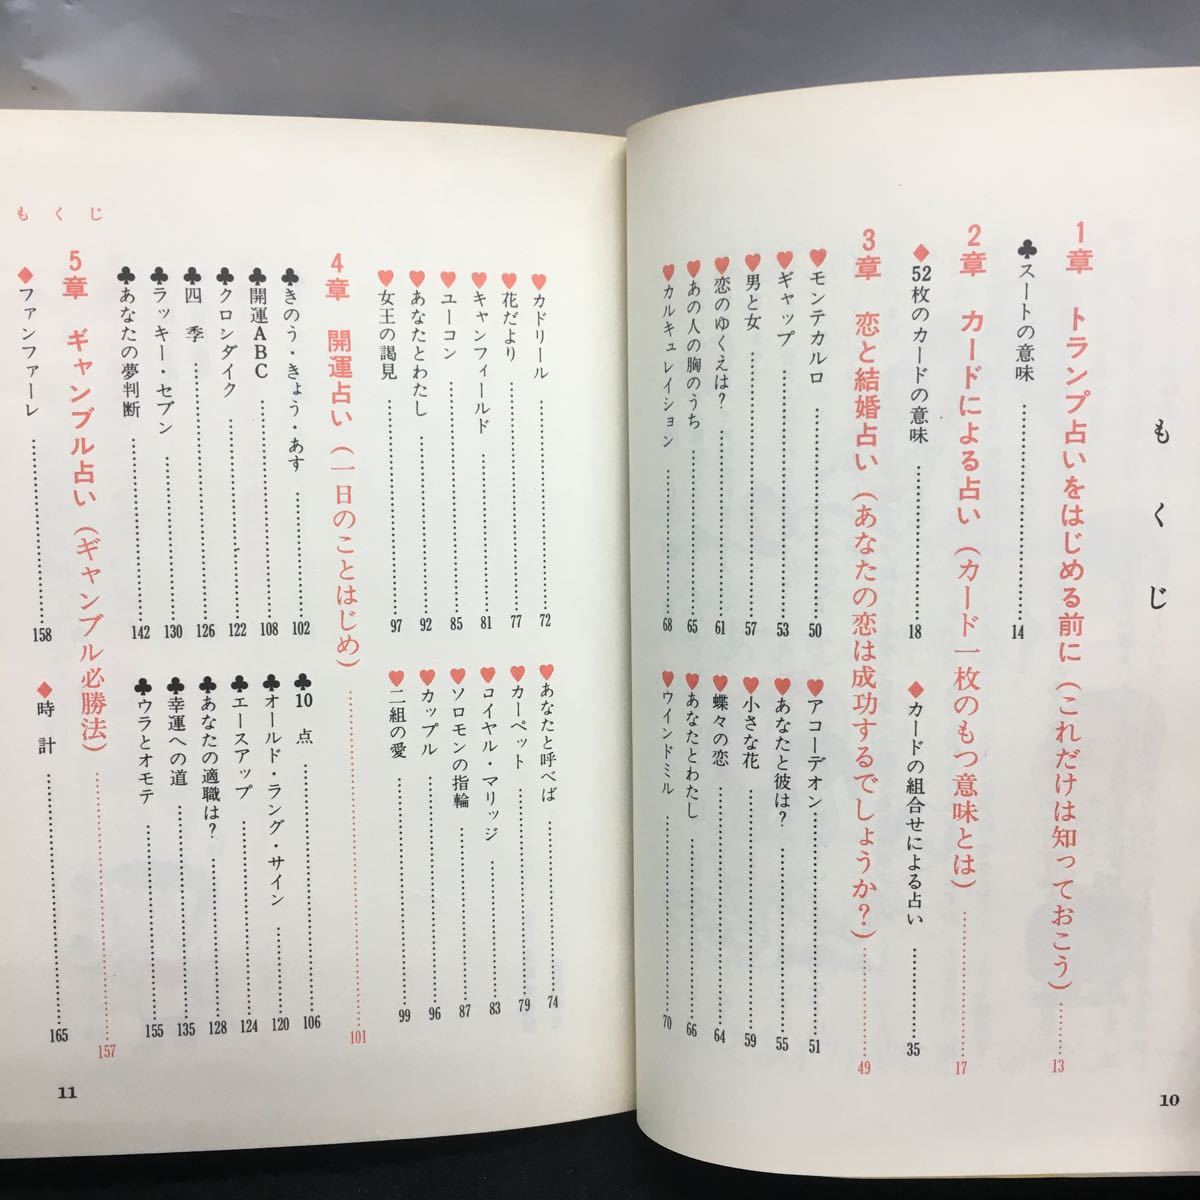 もくじ
1章 トランプ占いをはじめる前に（これだけは知っておこう）……13
♣スートの意味……14
2章 カードによる占い（カード一枚のもつ意味とは）……17
♦52枚のカードの意味……18
♦カードの組合せによる占い……35
3章 恋と結婚占い（あなたの恋は成功するでしょうか？）……49
♥モンテカルロ……50
♥アコーデオン……51
♥ギャップ……53
♥あなたと彼は？……55
♥男と女……57
♥小さな花……59
♥恋のゆくえは？……61
♥蝶々の恋……64
♥あの人の胸のうち……65
♥あなたとわたし……66
♥カルキュレイション……68
♥ウインドミル……70
10
♥カドリール……72
♥あなたと呼べば……74
♥花だより……77
♥カーペット……79
♥キャンフィールド……81
♥ロイヤル・マリッジ……83
♥ユーコン……85
♥ソロモンの指輪……87
♥あなたとわたし……92
♥カップル……96
♥女王の謁見……97
♥二組の愛……99
4章 開運占い（一日のことはじめ）……101
♣きのう・きょう・あす……102
♣10点……106
♣開運ABC……108
♣オールド・ラング・サイン……120
♣クロンダイク……122
♣エースアップ……124
♣四季……126
♣あなたの適職は？……128
♣ラッキー・セブン……130
♣幸運への道……135
♣あなたの夢判断……142
♣ウラとオモテ……155
5章 ギャンブル占い（ギャンブル必勝法）……157
♦ファンファーレ……158
♦時計……165
もくじ
11